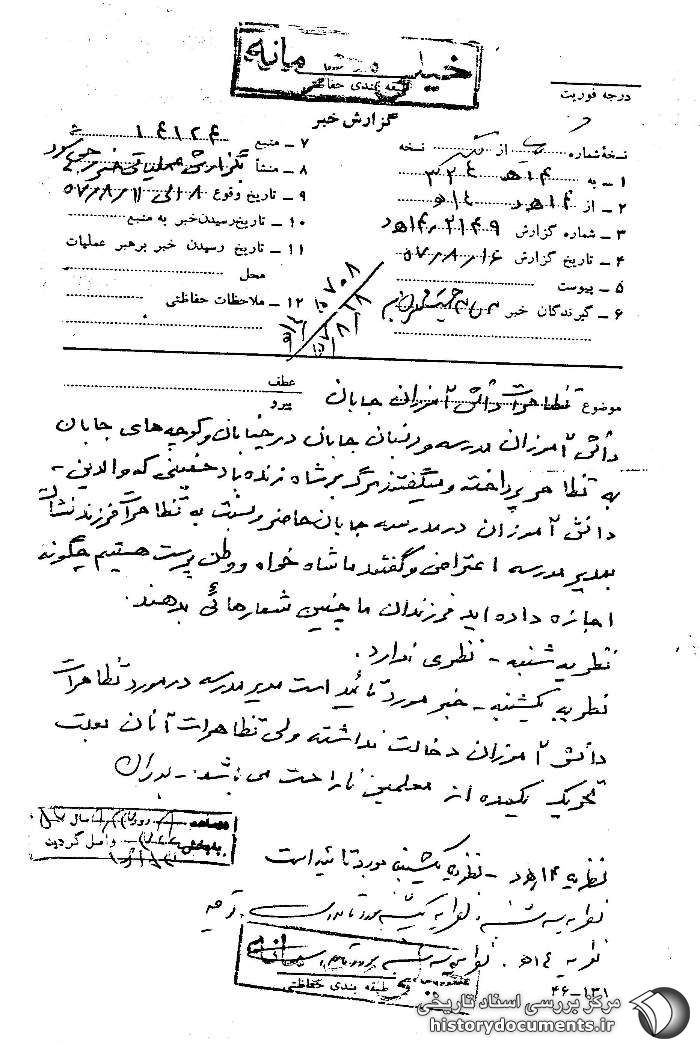 خیلی محرمانه
طبقه بندی حفاظتی
درجه فوریت
گزارش خبر
نسخهٔ شماره از نسخه
۱ ــ به ۱۴هـ ۳۲۴
۲ ــ از ۱۴هـ د ۱۴هـ
۳ ــ شماره گزارش ۱۴٫۲۱۴۹هـ د
۴ ــ تاریخ گزارش ۵۷٫۸٫۱۶
۵ ــ پیوست
۶ ــ گیرندگان خبر
۷ ــ منبع ۱۴۱۲۴
۸ ــ منشأ
۹ ــ تاریخ وقوع ۸ الی ۵۷٫۸٫۱۱
۱۰ ــ تاریخ رسیدن خبر به منبع
۱۱ ــ تاریخ رسیدن خبر برهبر عملیات
محل
۱۲ ــ ملاحظات حفاظتی
۷۰۸
عطف
پیرو
موضوع تظاهرات دانش آموزان جابان
دانش آموزان مدرسه جابان در خیابان و کوچه های جابان
به تظاهر پرداخته و میگفتند مرگ بر شاه زنده باد خمینی که والدین ـ
دانش آموزان در مدرسه جابان حاضر و نسبت به تظاهرات فرزندانشان
بمدیر مدرسه اعتراض و گفتند ما شاه خواه و وطن پرست هستیم چگونه
اجازه داده اید فرزندان ما چنین شعارهائی بدهند.
نظریه شنبه ـ نظری ندارد.
نظریه یکشنبه ـ خبر مورد تائید است مدیر مدرسه در مورد تظاهرات
دانش آموزان دخالت نداشته ولی تظاهرات آنان بعلت
تحریک یکعده از معلمین ناراحت می باشد ـ
بایگانی واصل گردید
نظریه ۱۴هـ د ـ نظریه یکشنبه مورد تائید است
نظریه سه شنبه. نظریه یکشنبه مورد تائید است.
نظریه ۱۴هـ. نظریه سه شنبه مورد تائید است
طبقه بندی حفاظتی
۴۶ــ۱۳۱
مرکز بررسی اسناد تاریخی
historydocuments.ir